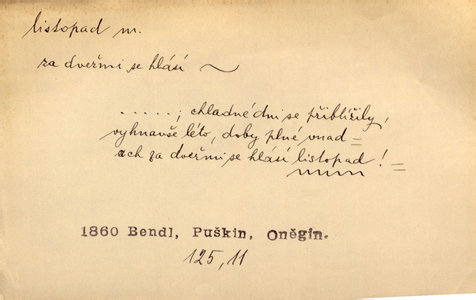 listopad m.
za dveřmi se hlásí ~
.....; chladné dni se přiblížily,
vyhnavše léto, doby plné vnad =
ach za dveřmi se hlásí listopad! =
1860 Bendl, Puškin, Oněgin.
125, 11